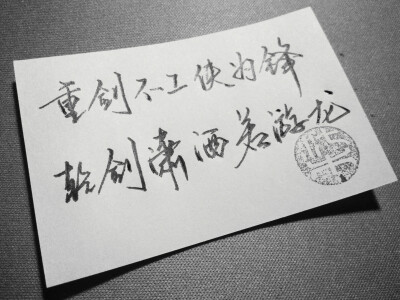 重剑不工侠为锋
轻剑潇洒若游龙